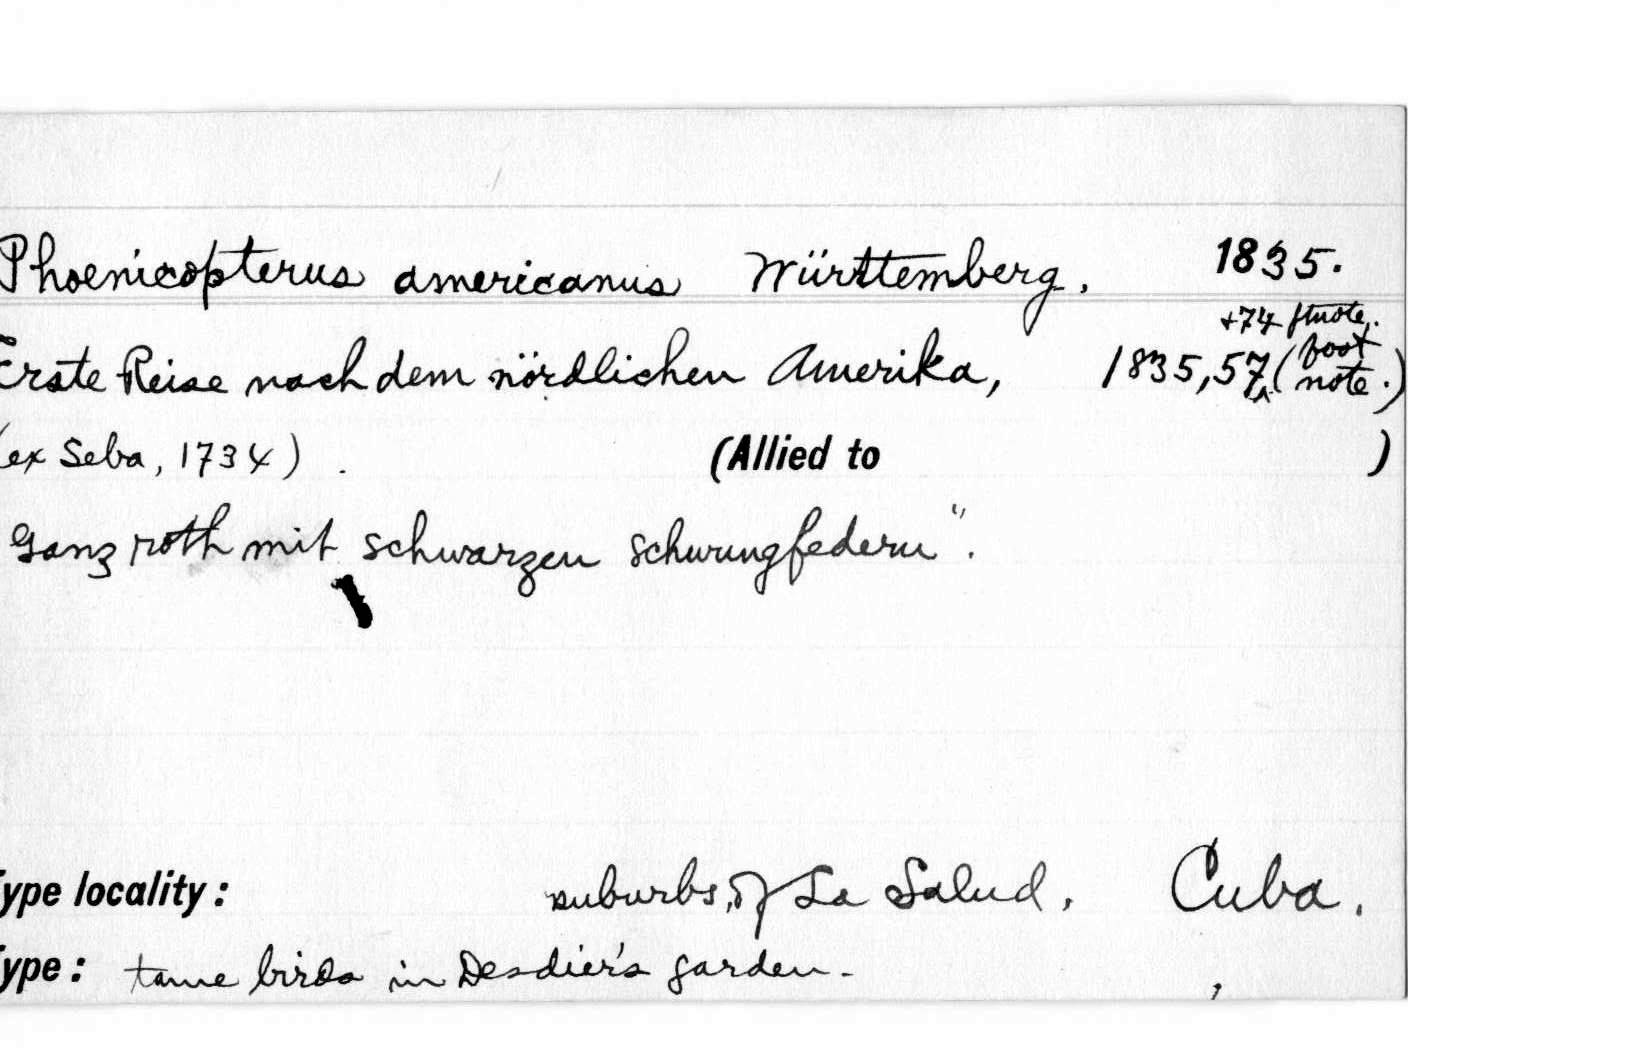 Phoenicopterus americanus Württemberg. 1835.
+74 ftnote.
Erste Reise nach dem nördlichen Amerika, 1835, 57, (foot note.)
(ex Seba, 1734). (Allied to )
Ganz roth mit schwarzen Schwungfedern".
Type locality: suburbs, of La Salud, Cuba.
Type: tame birds in Desdier's garden.